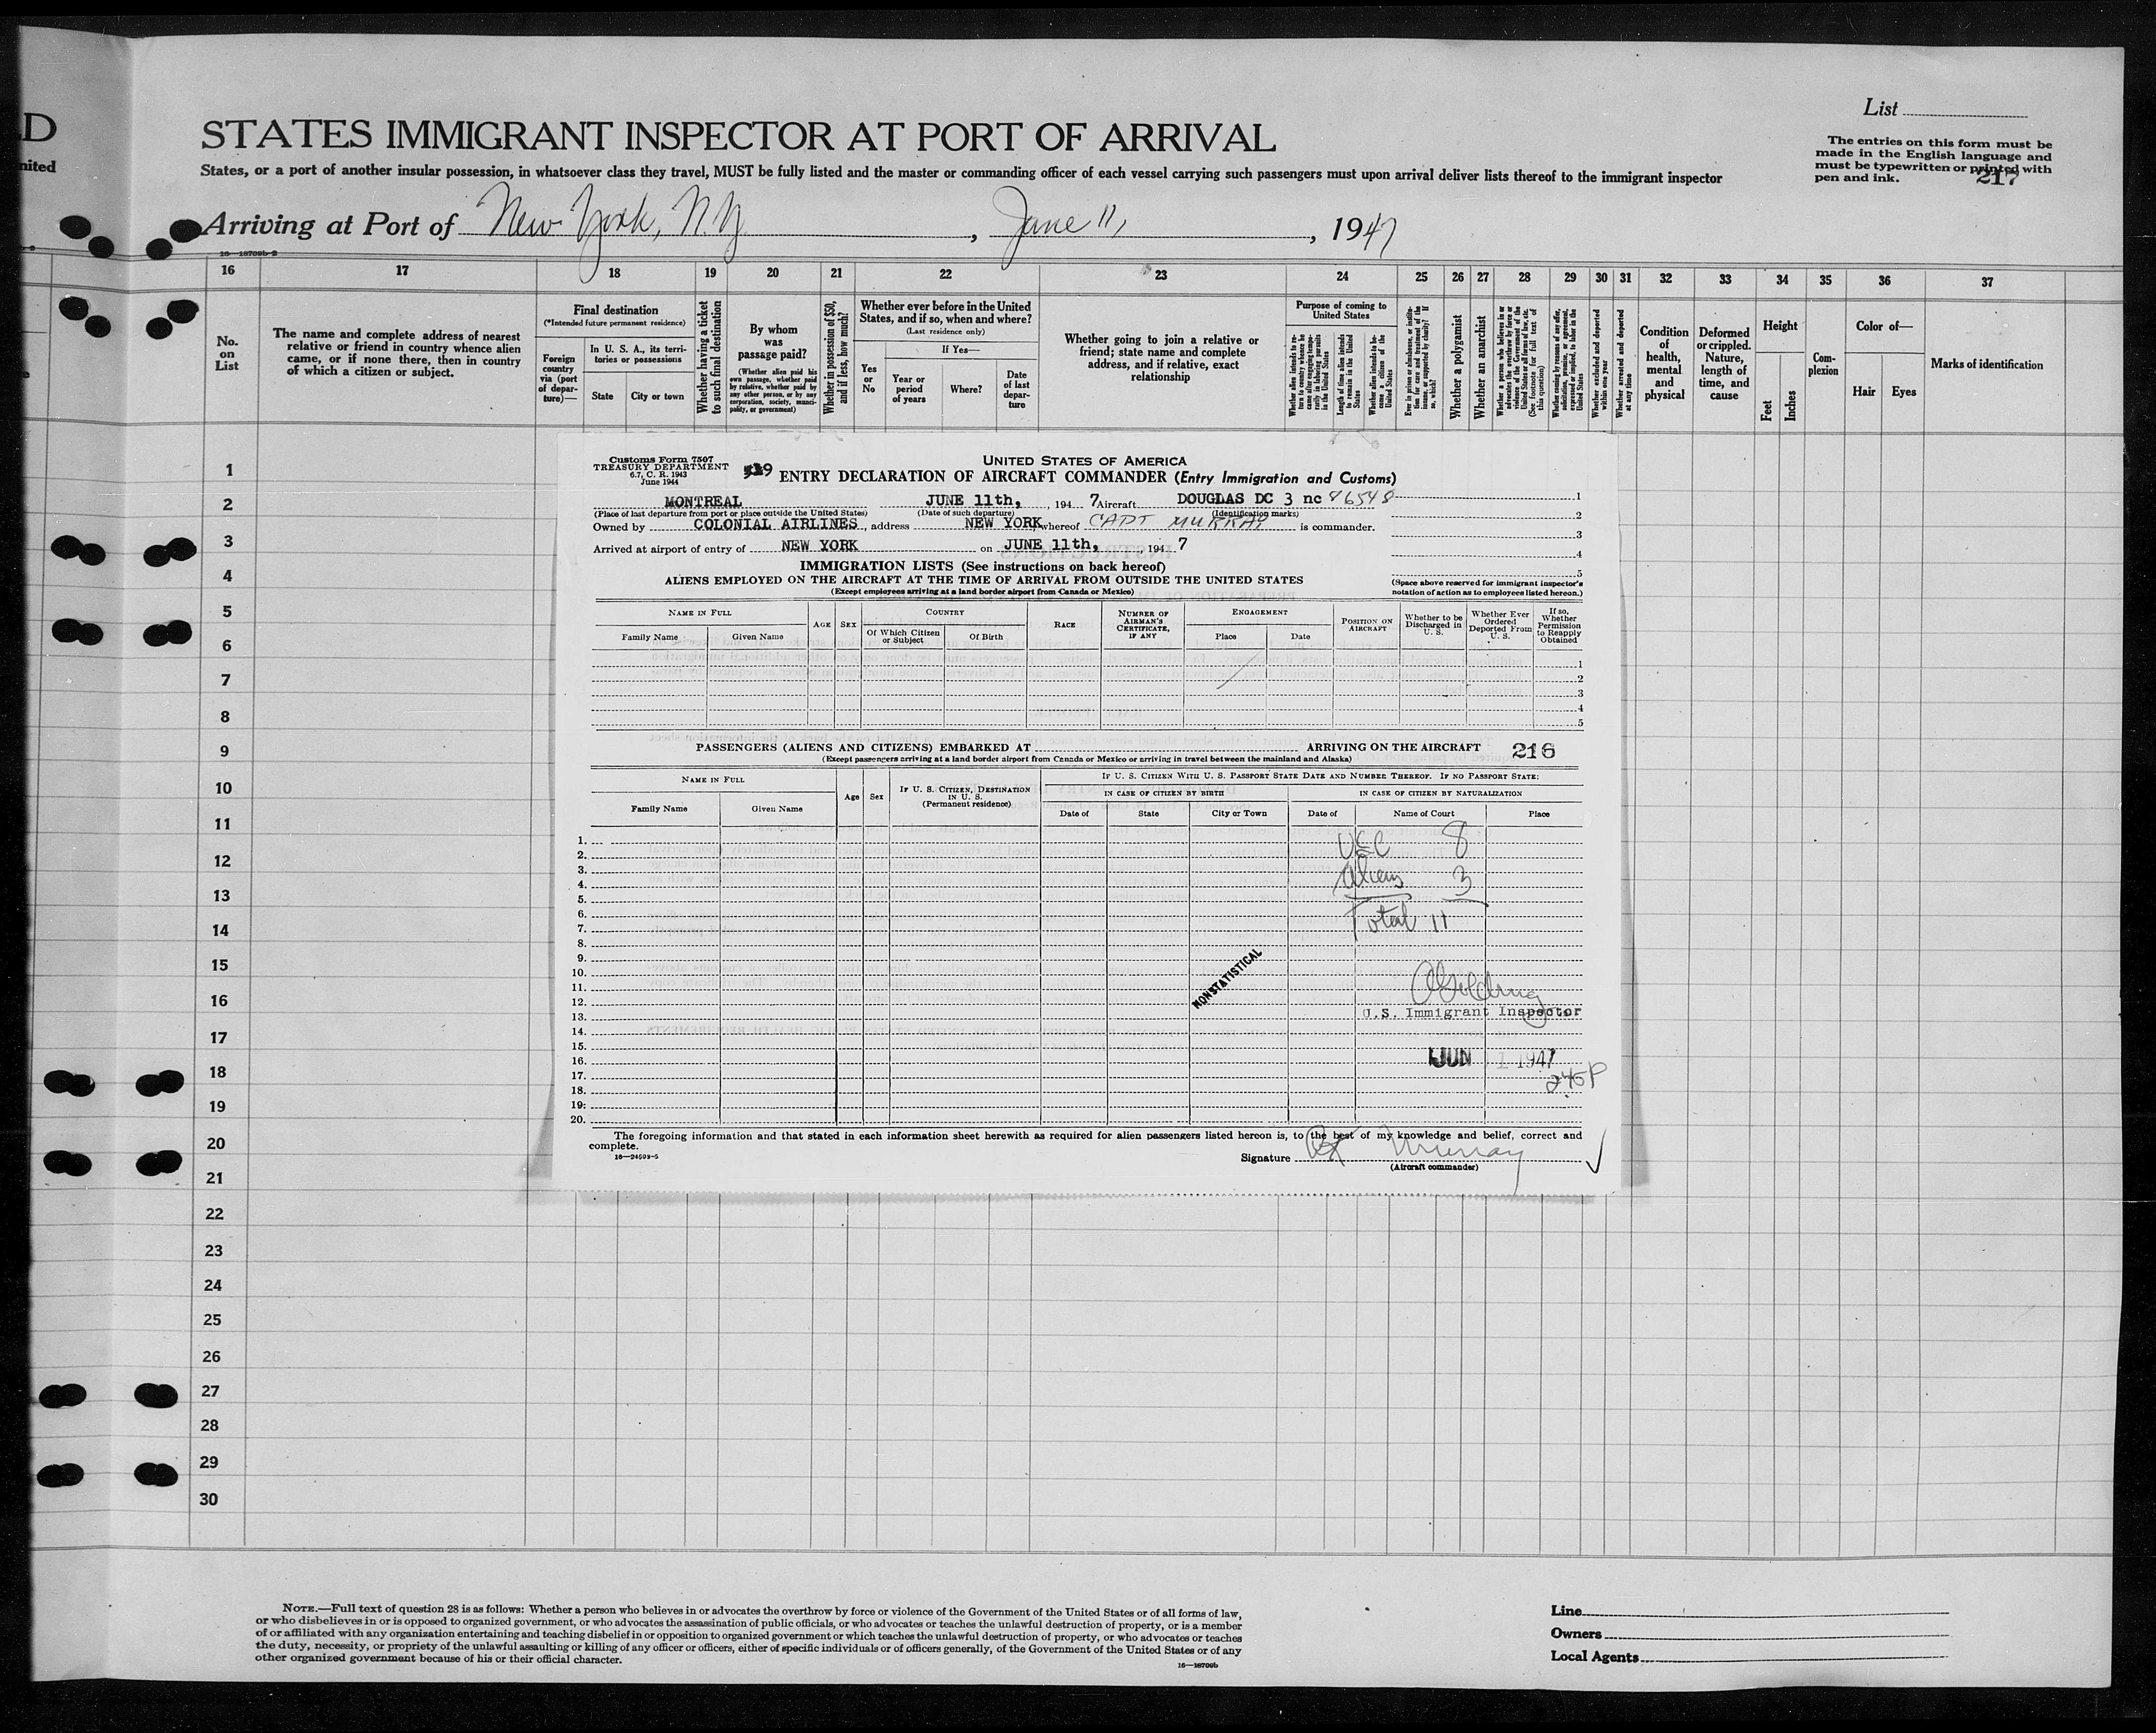 D
nited
List
STATES IMMIGRANT INSPECTOR AT PORT OF ARRIVAL
The entries on this form must be
made in the English language and
must be typewritten or printed with
pen and ink.
217
States, or a port of another insular possession, in whatsoever class they travel, MUST be fully listed and the master or commanding officer of each vessel carrying such passengers must upon arrival deliver lists thereof to the immigrant inspector
Arriving at Port of New York, N.Y. , June 11, , 1947
16—18709b-2
16 17 18 19 20 21 22 23 24 25 26 27 28 29 30 31 32 33 34 35 36 37
No.
on
List
The name and complete address of nearest
relative or friend in country whence alien
came, or if none there, then in country
of which a citizen or subject.
Final destination
(*Intended future permanent residence)
Foreign
country
via (port
of depar-
ture)—
In U. S. A., its terri-
tories or possessions
State City or town
Whether having a ticket
to such final destination
By whom
was
passage paid?
(Whether alien paid his
own passage, whether paid
by relative, whether paid by
any other person, or by any
corporation, society, munici-
pality, or government)
Whether in possession of $50,
and if less, how much?
Whether ever before in the United
States, and if so, when and where?
(Last residence only)
If Yes—
Yes
or
No
Year or
period
of years
Where?
Date
of last
depar-
ture
Whether going to join a relative or
friend; state name and complete
address, and if relative, exact
relationship
Purpose of coming to
United States
Length of time alien intends
to remain in the United
States
Whether alien intends to be-
come a citizen of the
United States
Whether a polygamist
Whether an anarchist
Whether excluded and deported
within one year
Whether arrested and deported
at any time
Condition
of
health,
mental
and
physical
Deformed
or crippled.
Nature,
length of
time, and
cause
Height
Feet Inches
Com-
plexion
Color of—
Hair Eyes
Marks of identification
1
2
3
4
5
6
7
8
9
10
11
12
13
14
15
16
17
18
19
20
21
22
23
24
25
26
27
28
29
30
Customs Form 7507
TREASURY DEPARTMENT
6.7, C. R. 1943
June 1944
UNITED STATES OF AMERICA
ENTRY DECLARATION OF AIRCRAFT COMMANDER (Entry Immigration and Customs)
MONTREAL JUNE 11th, , 194 7 Aircraft DOUGLAS DC 3 nc 86548
(Place of last departure from port or place outside the United States) (Date of such departure) (Identification marks)
Owned by COLONIAL AIRLINES , address NEW YORK whereof CAPT MURRAY is commander.
Arrived at airport of entry of NEW YORK on JUNE 11th, , 194 7
1
2
3
4
5
IMMIGRATION LISTS (See instructions on back hereof)
ALIENS EMPLOYED ON THE AIRCRAFT AT THE TIME OF ARRIVAL FROM OUTSIDE THE UNITED STATES
(Except employees arriving at a land border airport from Canada or Mexico)
(Space above reserved for immigrant inspector's
notation of action as to employees listed hereon.)
NAME IN FULL
Family Name Given Name
AGE SEX
COUNTRY
Of Which Citizen
or Subject
Of Birth
RACE
NUMBER OF
AIRMAN'S
CERTIFICATE,
IF ANY
ENGAGEMENT
Place Date
POSITION ON
AIRCRAFT
Whether to be
Discharged in
U. S.
Whether Ever
Ordered
Deported From
U. S.
If so,
Whether
Permission
to Reapply
Obtained
1
2
3
4
5
PASSENGERS (ALIENS AND CITIZENS) EMBARKED AT ARRIVING ON THE AIRCRAFT 216
(Except passengers arriving at a land border airport from Canada or Mexico or arriving in travel between the mainland and Alaska)
NAME IN FULL
Family Name Given Name
Age Sex
IF U. S. CITIZEN, DESTINATION
IN U. S.
(Permanent residence)
IF U. S. CITIZEN WITH U. S. PASSPORT STATE DATE AND NUMBER THEREOF. IF NO PASSPORT STATE:
IN CASE OF CITIZEN BY BIRTH IN CASE OF CITIZEN BY NATURALIZATION
Date of State City or Town Date of Name of Court Place
1.
2.
3.
4.
5.
6.
7.
8.
9.
10.
11.
12.
13.
14.
15.
16.
17.
18.
19.
20.
USC 8
Aliens 3
Total 11
NONSTATISTICAL
U.S. Immigrant Inspector
JUN 11 1947
245P
The foregoing information and that stated in each information sheet herewith as required for alien passengers listed hereon is, to the best of my knowledge and belief, correct and
complete.
16—24593-5
Signature Murray
(Aircraft commander)
NOTE.—Full text of question 28 is as follows: Whether a person who believes in or advocates the overthrow by force or violence of the Government of the United States or of all forms of law,
or who disbelieves in or is opposed to organized government, or who advocates the assassination of public officials, or who advocates or teaches the unlawful destruction of property, or is a member
of or affiliated with any organization entertaining and teaching disbelief in or opposition to organized government or which teaches the unlawful destruction of property, or who advocates or teaches
the duty, necessity, or propriety of the unlawful assaulting or killing of any officer or officers, either of specific individuals or of officers generally, of the Government of the United States or of any
other organized government because of his or their official character.
16—18709b
Line
Owners
Local Agents